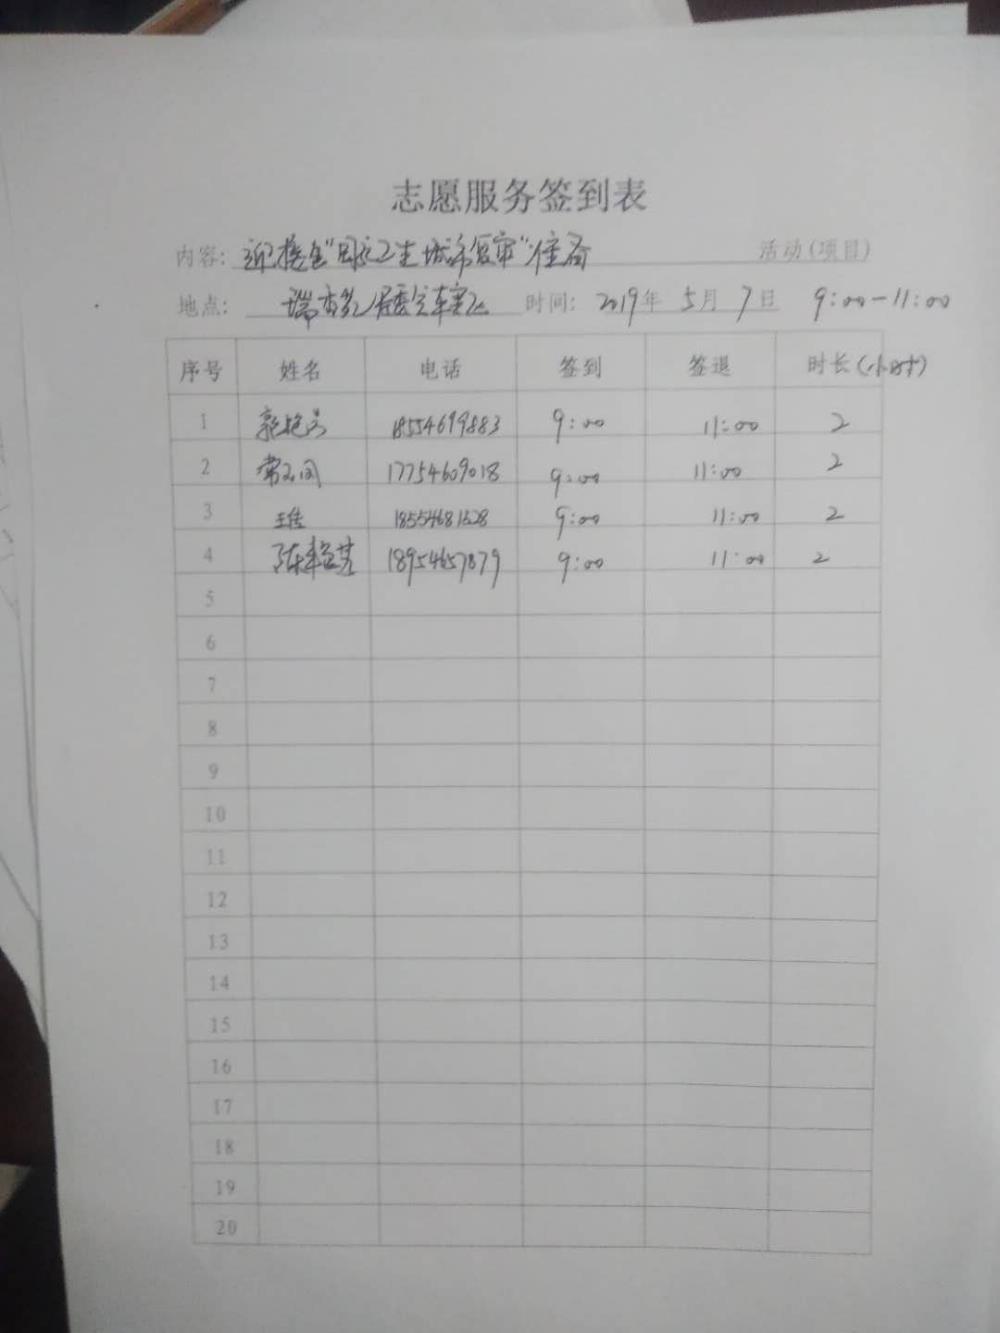 志愿服务签到表
内容: 迎接全"国家卫生城市复审"准备 活动(项目)
地点: 居委会辖区 时间: 2019年 5月 7日 9:00-11:00
序号 姓名 电话 签到 签退 时长(小时)
1 18554699883 9:00 11:00 2
2 17754609018 9:00 11:00 2
3 王佳 9:00 11:00 2
4 陈 18954657879 9:00 11:00 2
5
6
7
8
9
10
11
12
13
14
15
16
17
18
19
20